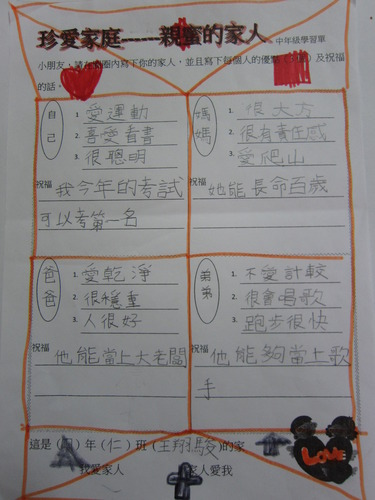 珍愛家庭------親蜜的家人 中年級學習單
小朋友，請在圈內寫下你的家人，並且寫下每個人的優點()及祝福
的話。
自己
1. 愛運動
2. 喜愛看書
3. 很聰明
祝福 我今年的考試
可以考第一名
媽媽
1. 很大方
2. 很有責任感
3. 愛爬山
祝福 她能長命百歲
爸爸
1. 愛乾淨
2. 很穩重
3. 人很好
祝福 他能當上大老闆
弟弟
1. 不愛計較
2. 很會唱歌
3. 跑步很快
祝福 他能夠當上歌
手
這是()年(仁)班(王翔駿)的家
我愛家人 家人愛我
LOVE